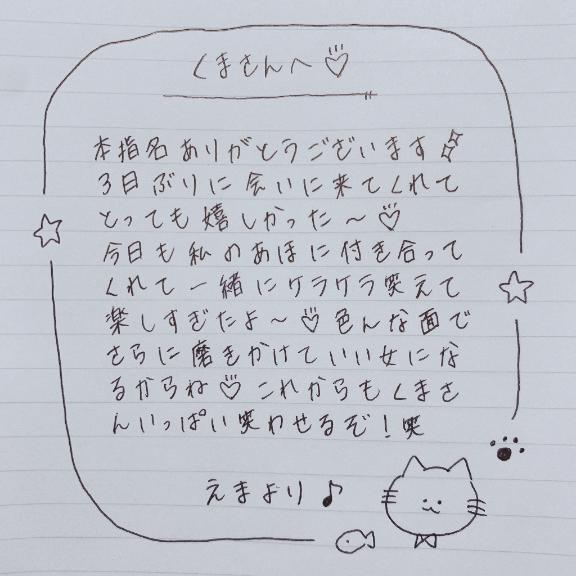 くまさんへ♡
本指名ありがとうございます
3日ぶりに会いに来てくれて
とっても嬉しかった〜♡
今日も私のあほに付き合って
くれて一緒にケラケラ笑えて
楽しすぎたよ〜♡色んな面で
さらに磨きかけていい女にな
るからね♡これからもくまさ
んいっぱい笑わせるぞ！笑
えまより♪